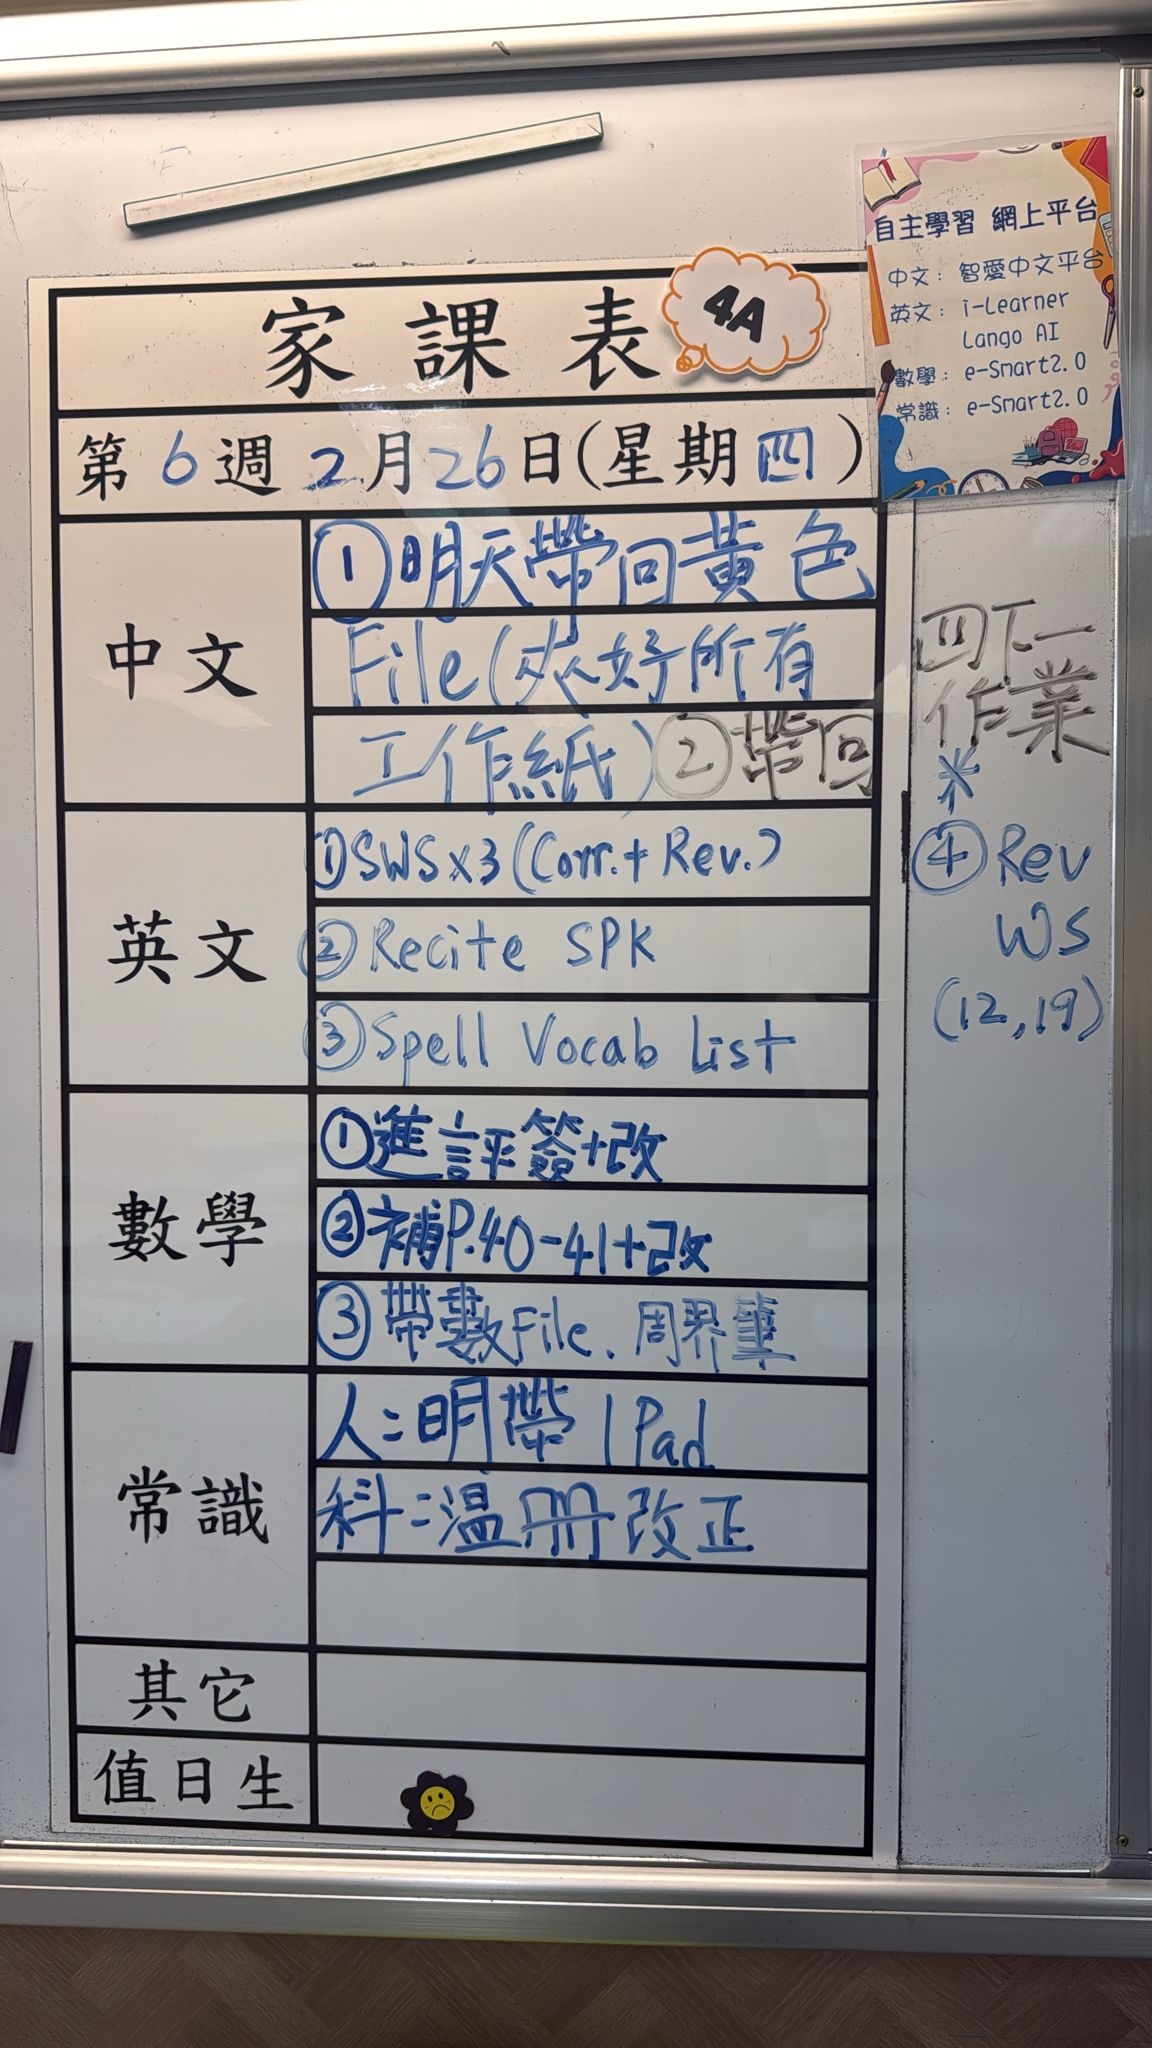 自主學習 網上平台
中文：智愛中文平台
英文：i-Learner
Lango AI
數學：e-Smart2.0
常識：e-Smart2.0
家課表
4A
第6週2月26日(星期四)
中文
①明天帶回黃色
File(夾好所有
工作紙)②帶回
四下一
作業
英文
①SWSx3(Corr.+Rev.)
②Recite SPK
③Spell Vocab List
*
④Rev
WS
(12,19)
數學
①進評簽+改
②補P.40-41+改
③帶數File、周界筆
常識
人：明帶IPad
科：溫冊改正
其它
值日生